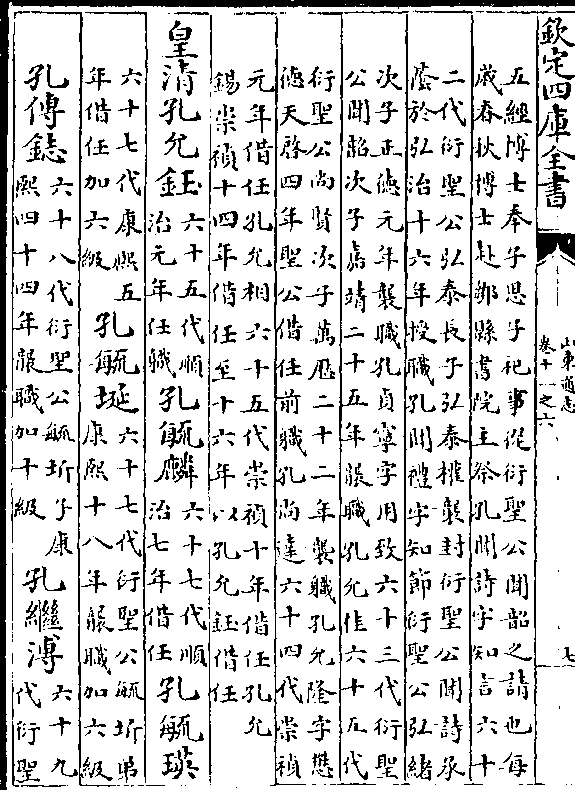 欽定四庫全書
山東通志
卷十一之六
七
五經博士奉子思子祀事從衍聖公聞韶之請也每
歲春秋博士赴鄒縣書院主祭孔聞詩字知言六十
二代衍聖公弘泰長子弘泰權襲封衍聖公聞詩承
蔭於弘治十六年授職孔聞禮字知節衍聖公弘緒
次子正德元年襲職孔貞寧字用致六十三代衍聖
公聞韶次子嘉靖二十五年服職孔允佳六十五代
衍聖公尚賢次子萬厯二十二年襲職孔允隆字懋
德天啓四年聖公借任前職孔尚達六十四代崇禎
元年借任孔允相六十五代崇禎十年借任孔允
錫崇禎十四年借任至十六年以孔允鈺借任
皇清孔允鈺六十五代順治元年任職孔毓麟六十七代順治七年借任孔毓瑛
六十七代康熙五年借任加六級孔毓埏六十七代衍聖公毓圻弟康熙十八年服職加六級
孔傳鋕六十八代衍聖公毓圻子康熙四十四年服職加十級孔繼溥六十九代衍聖